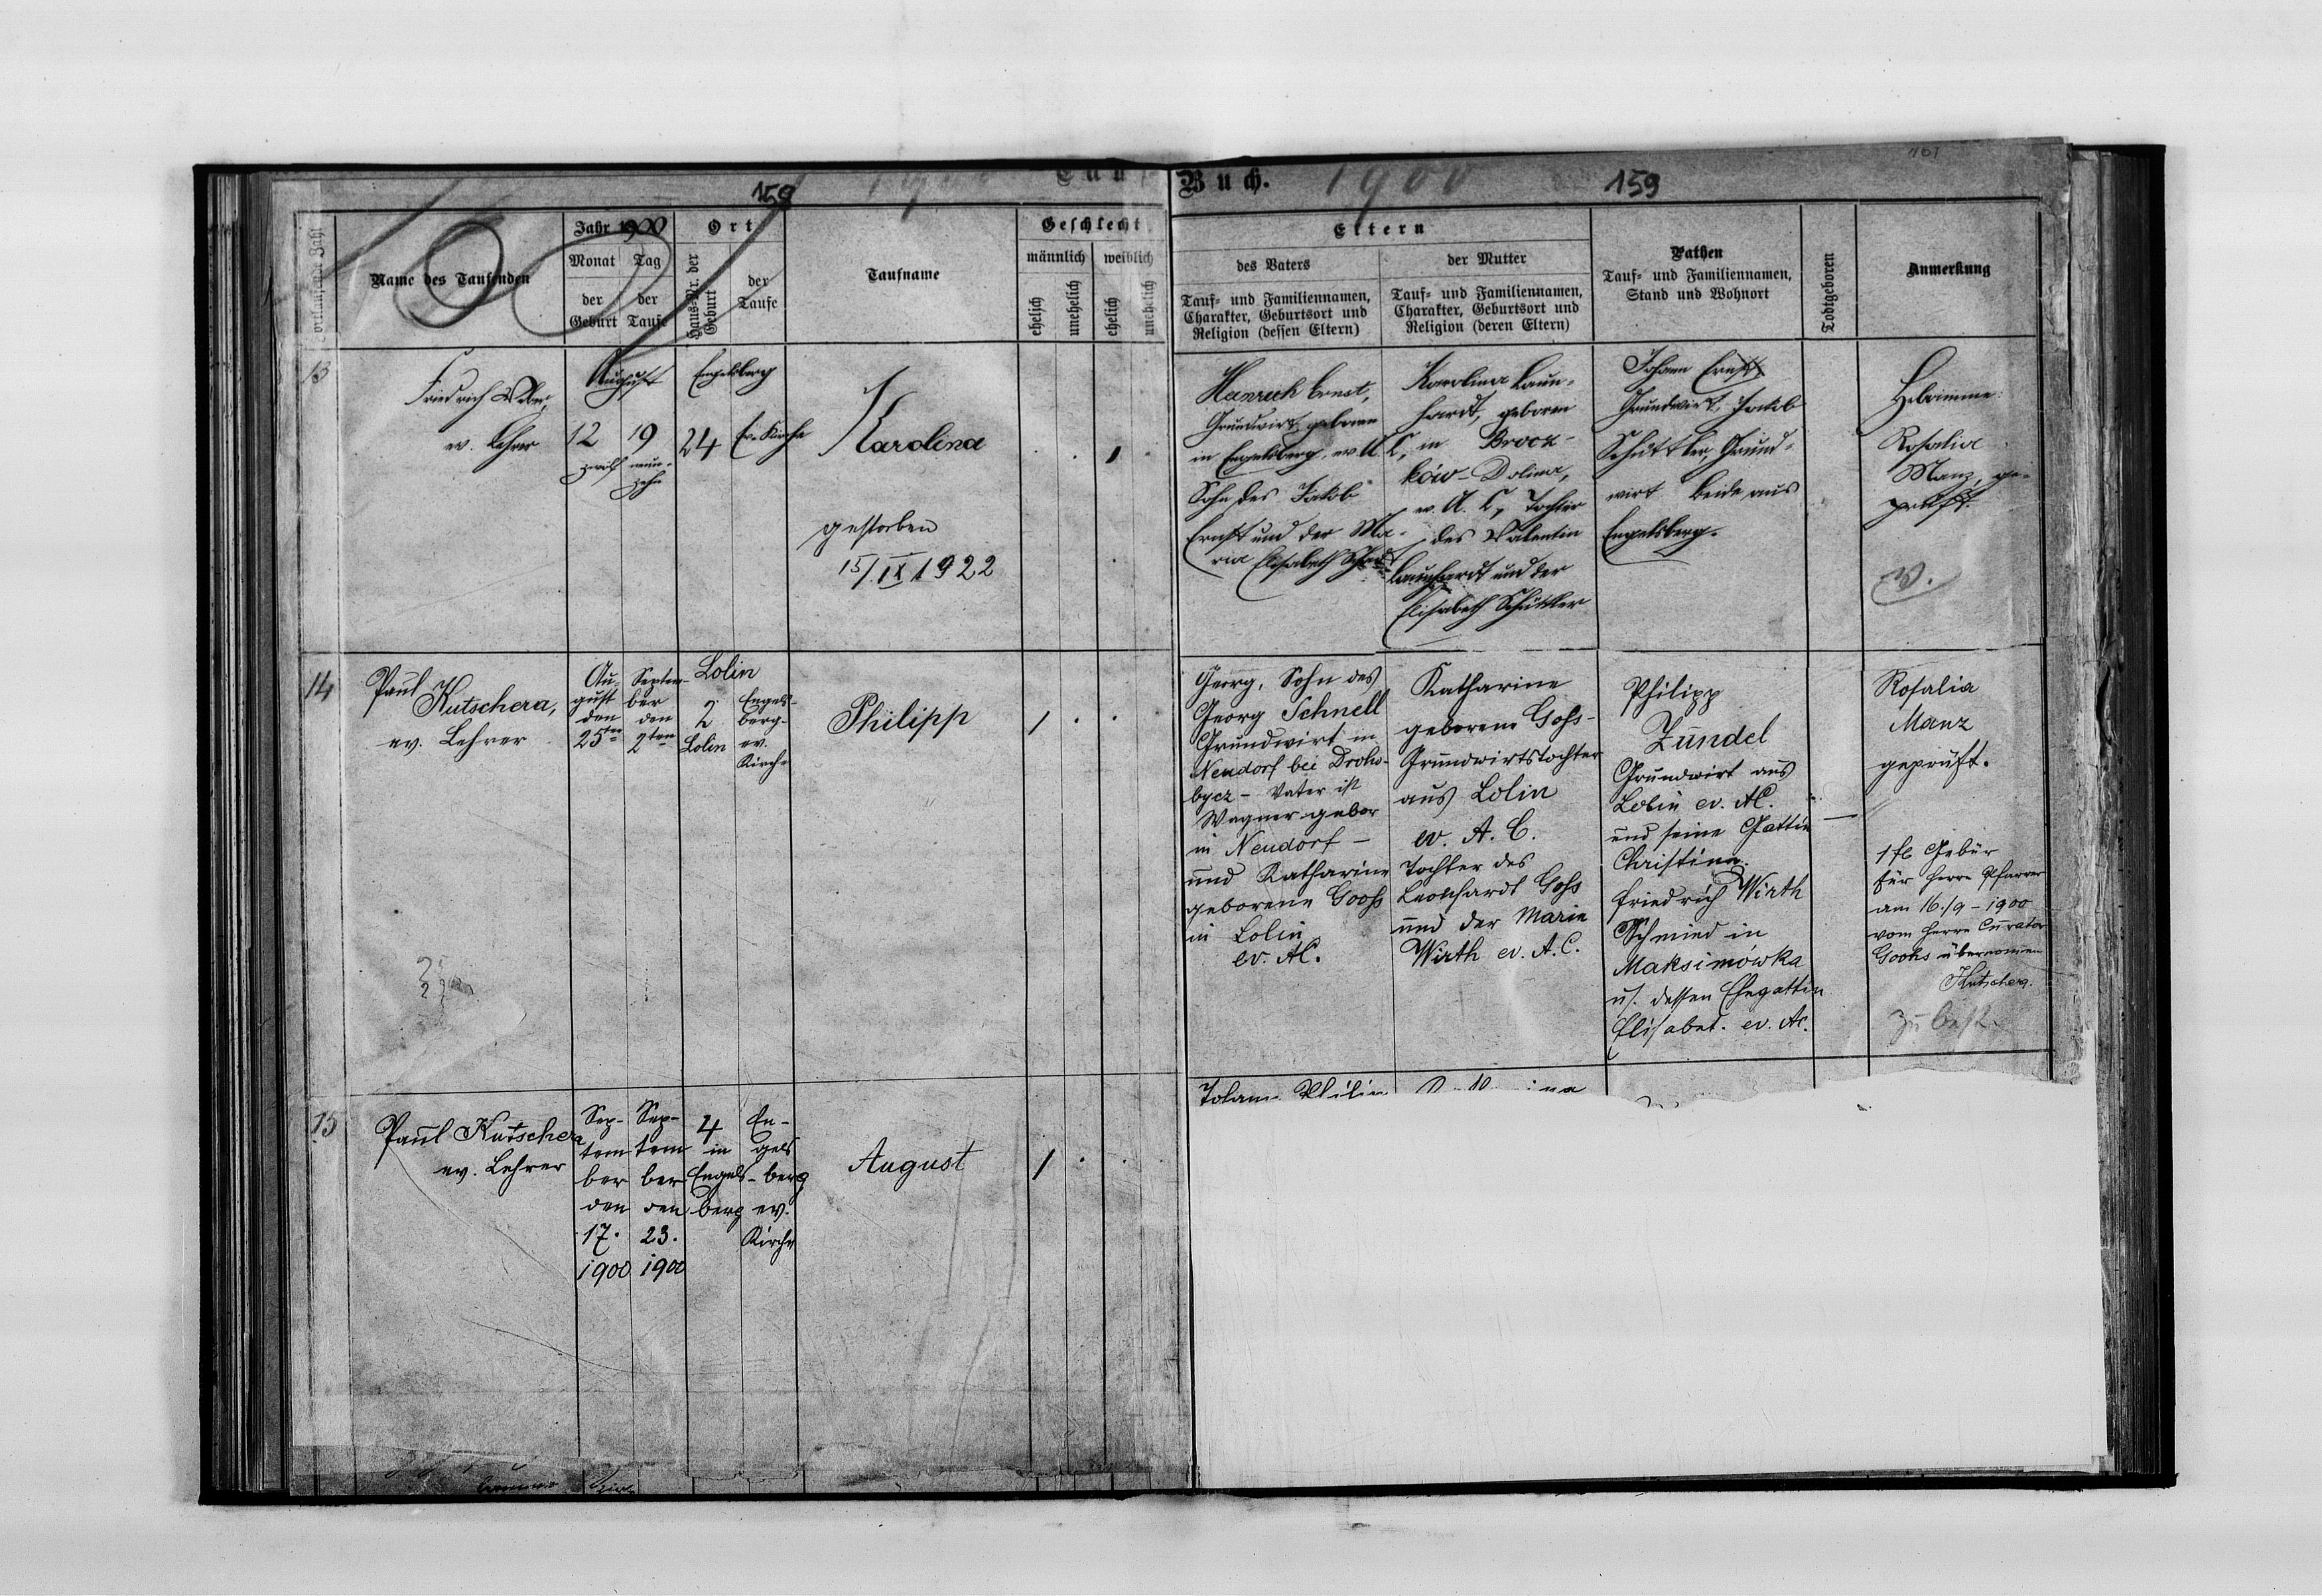 159
Buch. 1900 159
Name des Taufenden
Jahr 1900
Monat Tag
der der
Geburt Taufe
Ort
Haus-Nr. der
Geburt
der
Taufe
Taufname
Geschlecht
männlich weiblich
ehelich
unehelich
ehelich
unehelich
Eltern
des Vaters
Tauf- und Familiennamen,
Charakter, Geburtsort und
Religion (dessen Eltern)
der Mutter
Tauf- und Familiennamen,
Charakter, Geburtsort und
Religion (deren Eltern)
Pathen
Tauf- und Familiennamen,
Stand und Wohnort
Todtgeboren
Anmerkung
13
Friedrich
ev. Lehrer
August
12
zwölf
19
neun-
zehn
Engelsberg
24
Ev. Kirche
Karolina
gestorben
15/IX 1922
Heinrich Ernst,
Grundwirt, geboren
in Engelsberg, ev. A. C,
Sohn des Jakob
Ernst und der Ma-
ria Elisabeth
Karolina Laun-
hardt, geboren
in Brocz-
ków-Dolina,
ev. A. C, Tochter
des Valentin
Launhardt und der
Elisabeth Schüttler
Johann Ernst,
Grundwirt, Jakob
Schüttler, Grund-
wirt beide aus
Engelsberg.
Hebamme:
Rosalia
Manz, ge-
prüft.
14
Paul
Kutschera,
ev. Lehrer
Au-
gust
den
25ten
Septem-
ber
den
2ten
Lolin
2
Lolin
Engels-
berg-
ev.
Kirche
Philipp
1
Georg, Sohn des
Georg Schnell
Grundwirt in
Neudorf bei Droho-
bycz - Vater ist
Wagner gebor
in Neudorf -
und Katharine
geborenen Gooss
in Lolin
ev. AC.
Katharine
geborene Goss-
Grundwirtstochter
aus Lolin
ev. A. C.
Tochter des
Leonhardt Goss
und der Marie
Wirth ev. A. C.
Philipp
Zundel
Grundwirt aus
Lolin ev. AC.
und seine Gattin
Christine.
Friedrich Wirth
Schmied in
Maksimówka
u. dessen Ehegattin
Elisabet. ev. AC.
—
Rosalia
Manz
geprüft.
1 fl Gebür
für Herrn Pfarrer
am 16./9 - 1900
vom Herrn Curator
Goohs übernomen
Kutschera.
15
Paul Kutschera
ev. Lehrer
Sep-
tem
ber
den
17.
1900
Sep-
tem
ber
den
23.
1900
4
in
Engels-
berg
En-
gels
-berg
ev.
Kirche
August
1